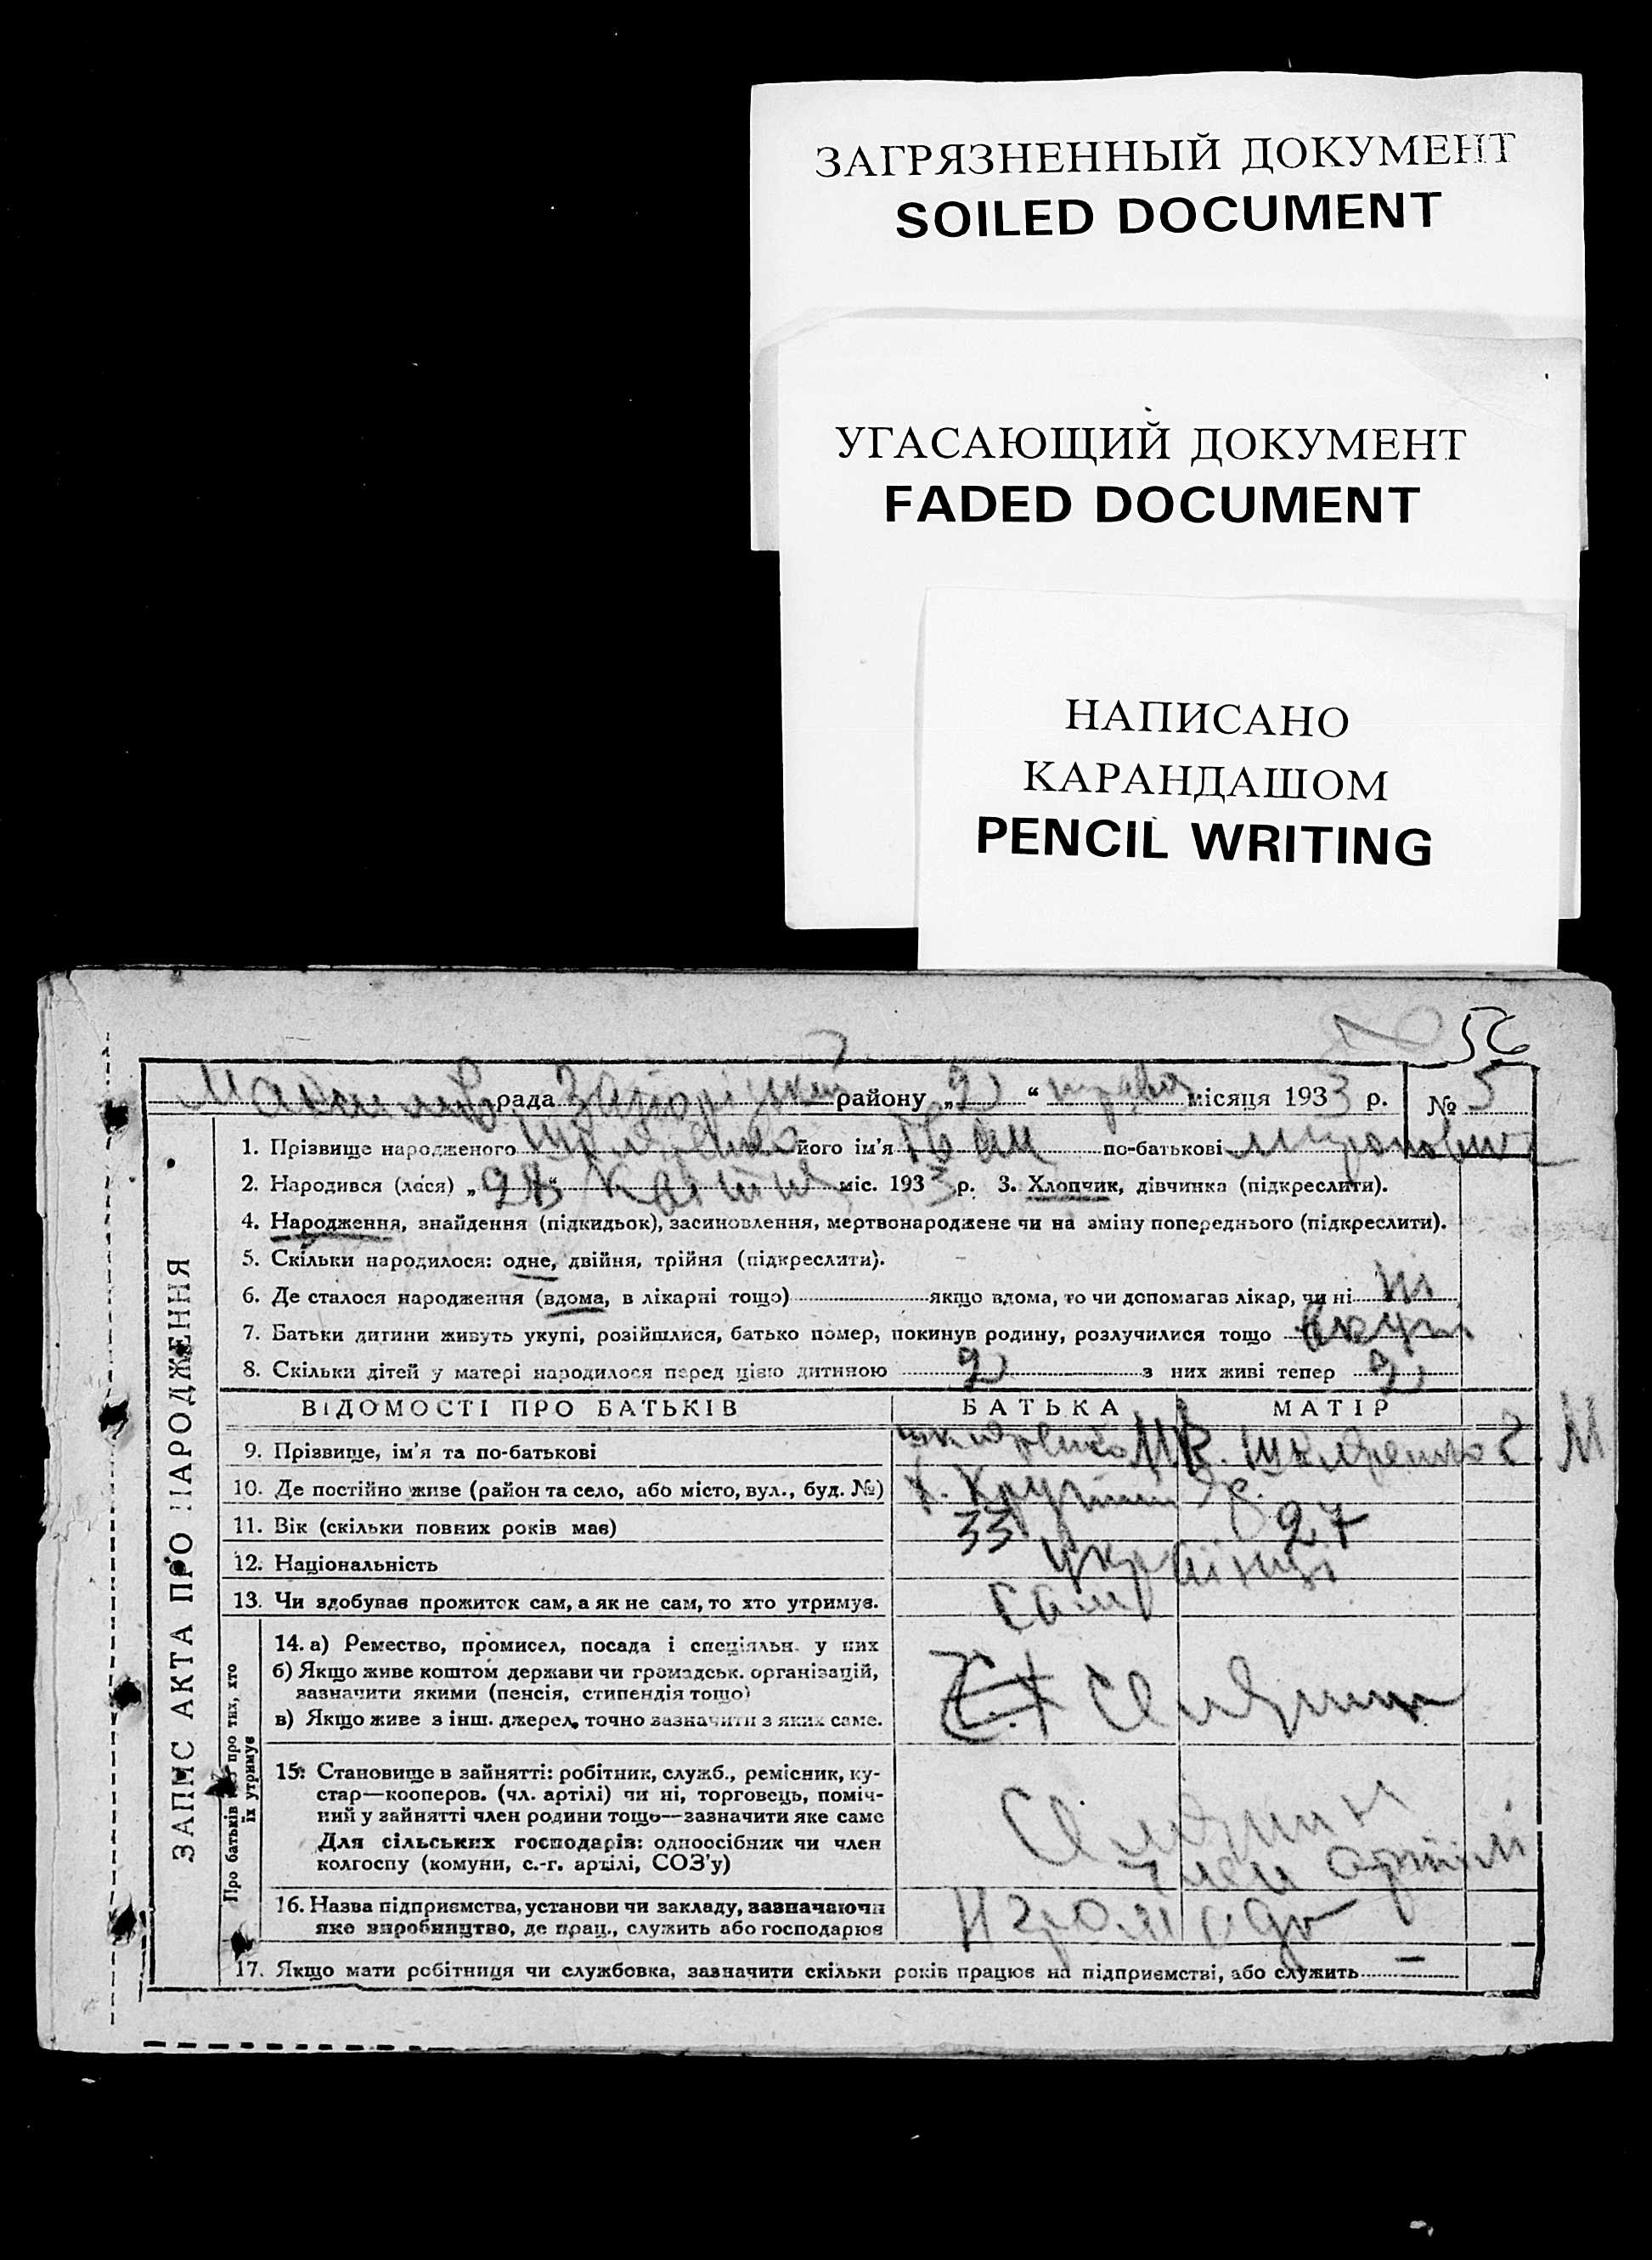 ЗАГРЯЗНЕННЫЙ ДОКУМЕНТ
SOILED DOCUMENT
УГАСАЮЩИЙ ДОКУМЕНТ
FADED DOCUMENT
НАПИСАНО
КАРАНДАШОМ
PENCIL WRITING
56
рада району „2“ місяця 1933 р. № 5
1. Прізвище народженого Шкляренко його ім'я Іван по-батькові
2. Народився (лася) „28“ квітня міс. 1933 р. 3. Хлопчик, дівчинка (підкреслити).
4. Народження, знайдення (підкидьок), засиновлення, мертвонароджене чи на зміну попереднього (підкреслити).
5. Скільки народилося: одне, двійня, трійня (підкреслити).
6. Де сталося народження (вдома, в лікарні тощо) якщо вдома, то чи допомагав лікар, чи ні ні
7. Батьки дитини живуть укупі, розійшлися, батько помер, покинув родину, розлучилися тощо вкупі
8. Скільки дітей у матері народилося перед цією дитиною 2 з них живі тепер 2
ЗАПИС АКТА ПРО НАРОДЖЕННЯ
ВІДОМОСТІ ПРО БАТЬКІВ БАТЬКА МАТІР
9. Прізвище, ім'я та по-батькові Шкляренко М В. Шкляренко Є. М
10. Де постійно живе (район та село, або місто, вул., буд. №) х.
11. Вік (скільки повних років має) 33 27
12. Національність українці
13. Чи здобуває прожиток сам, а як не сам, то хто утримує. сам
Про батьків про тих, хто їх утримує
14. а) Ремество, промисел, посада і спеціяльн. у них
б) Якщо живе коштом держави чи громадськ. організацій,
зазначити якими (пенсія, стипендія тощо)
в) Якщо живе з інш. джерел, точно зазначити з яких саме.
15. Становище в зайнятті: робітник, служб., ремісник, ку-
стар—кооперов. (чл. артілі) чи ні, торговець, поміч-
ний у зайнятті член родини тощо—зазначити яке саме
Для сільських господарів: одноосібник чи член
колгоспу (комуни, с.-г. артілі, СОЗ'у)
член артілі
16. Назва підприємства, установи чи закладу, зазначаючи
яке виробництво, де прац., служить або господарює
17. Якщо мати робітниця чи службовка, зазначити скільки років працює на підприємстві, або служить —